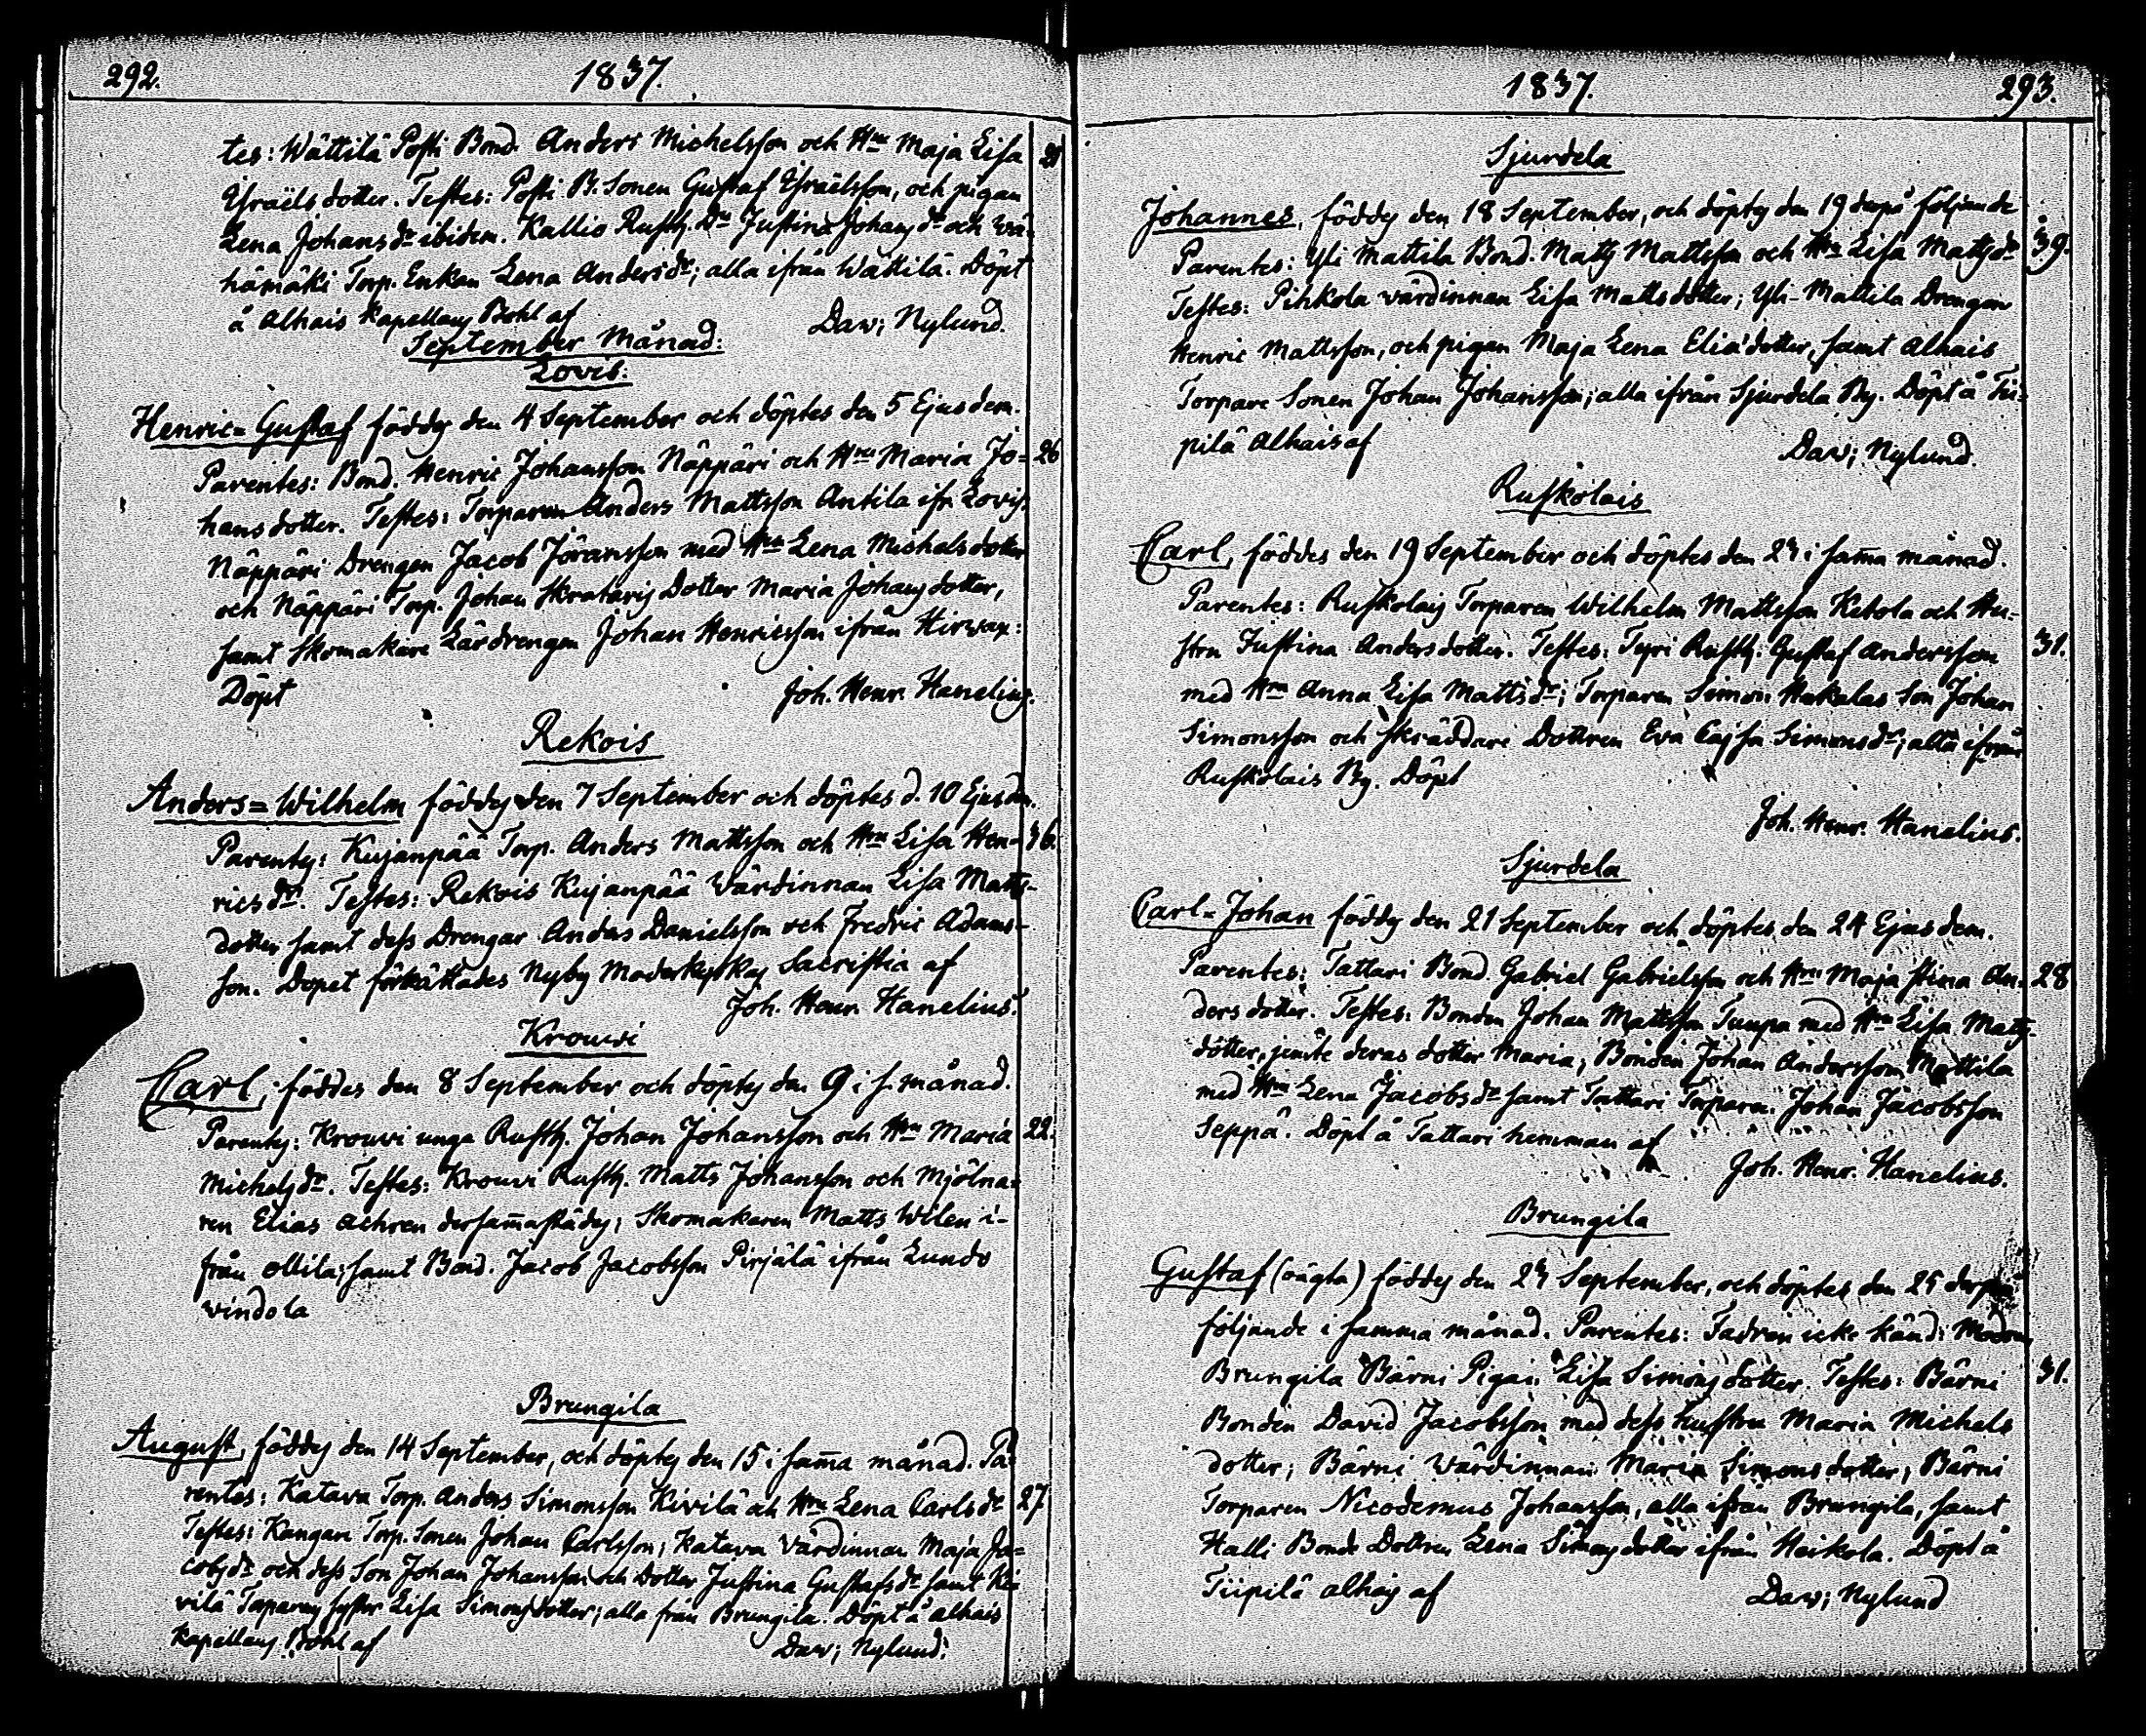 292.
1837.
tes: Wättilä Posti Bond. Anders Michelsson och Hru Maja Lisa
21
Ysraëlsdotter. Testes: Posti B. Sonen Gustaf Ysraëlsson, och pigan
Lena Johansdr ibidem. Kallio Rusth. Dr Justina Johansdr och Wä-
hämäki Torp. Enkan Lena Andersdr; alla ifrån Wättilä. Döpt
å Alhais Kapellans Bohl af
Dav; Nylund.
September Månad:
Lovis:
Henric=Gustaf föddes den 4 September och döptes den 5 Ejusdem.
Parentes: Bond. Henric Johansson Näppäri och Hru Maria Jo=
26
hansdotter. Testes: Torparen Anders Mattsson Antila ifr. Lovis,
Näppäri Drengen Jacob Jöransson med Hru Lena Michelsdotter
och Näppäri Torp. Johan Skrataris Dotter Maria Johansdotter,
samt Skomakare Lärdrengen Johan Henricsson ifrån Hirvax:
Döpt
Joh. Henr. Hanelius.
Rekois
Anders=Wilhelm föddes den 7 September och döptes d. 10 Ejusdm.
Parentes: Kujanpää Torp. Anders Mattsson och Hru Lisa Hen-
36.
ricsdr. Testes: Rekois Kujanpää Värdinnan Lisa Matts-
dotter samt dess Drengar Anders Danielsson och Fredric Adams-
son. Dopet förrättades Nyby Moderkyrkas Sacristia af
Joh. Henr. Hanelius.
Krouvi
Carl, föddes den 8 September och döptes den 9 i s. månad.
Parentes: Krouvi unga Rusth. Johan Johansson och Hru Maria
22.
Michelsdr. Testes: Krouvi Rusth. Matts Johansson och Mjölna=
ren Elias Achren dersam̄astädes; Skomakaren Matts Wilen i-
från Ollila; samt Bond. Jacob Jacobsson Pirjälä ifrån Lundo
vindola
Brungila
August, föddes den 14 September, och döptes den 15 i sam̄a månad. Pa-
rentes: Katava Torp. Anders Simonsson Kivilä och Hru Lena Carlsdr
27
Testes: Kangare Torp. Sonen Johan Carlsson; Katava Värdinnan Maja Ja=
cobsdr och dess Son Johan Johansson och Dotter Justina Gustafsdr samt Ki-
vilä Torparens syster Lisa Simonsdotter; alla från Brungila. Döpt å Alhais
Kapellans Bohl af
Dav; Nylund.
1837.
293.
Sjurdela
Johannes, föddes den 18 September, och döptes den 19 derpå följande
Parentes: Yli Mattila Bond. Matts Mattsson och Hru Lisa Mattsdr
39.
Testes: Pihkola värdinnan Lisa Mattsdotter; Yli-Mattila Drengen
Henric Mattsson, och pigan Maja Lena Eliædotter, samt Alhais
Torpare Sonen Johan Johansson; alla ifrån Sjurdela By. Döpt å Tii-
pilä Alhais af
Dav; Nylund.
Ruskolais
Carl, föddes den 19 September och döptes den 23 i sam̄a månad.
Parentes: Ruskolais Torparen Wilhelm Mattsson Ketola och Hu-
strn Justina Andersdotter. Testes: Tyri Rusth. Gustaf Andersson
31.
med Hru Anna Lisa Mattsdr; Torparen Simon Hakalas Son Johan
Simonsson och Skräddare Dottren Eva Cajsa Simonsdr; alla ifrån
Ruskolais By. Döpt
Joh. Henr. Hanelius.
Sjurdela
Carl=Johan föddes den 21 September och döptes den 24 Ejusdem.
Parentes: Tattari Bond. Gabriel Gabrielsson och Hru Maja Stina An-
28
dersdotter. Testes: Bonden Johan Mattsson Tuupa med Hru Lisa Matts-
dotter, jemte deras dotter Maria; Bonden Johan Andersson Mattila
med Hru Lena Jacobsdr samt Tattari Torparen Johan Jacobsson
Seppä. Döpt å Tattari hemman af
Joh. Henr. Hanelius.
Brungila
Gustaf (oägta) föddes den 23 September, och döptes den 25 derpå
följande i samma månad. Parentes: Fadren icke känd: Modren
Brungila Bärni Pigan Lisa Simonsdotter. Testes: Bärni
31.
Bonden David Jacobsson med dess hustru Maria Michels
dotter; Bärni Värdinnan Maria Simonsdotter; Bärni
Torparen Nicodemus Johansson, alla ifrån Brungila, samt
Halli Bonde Dottren Lena Simonsdotter ifrån Heikola. Döpt å
Tiipilä Alhais af
Dav; Nylund